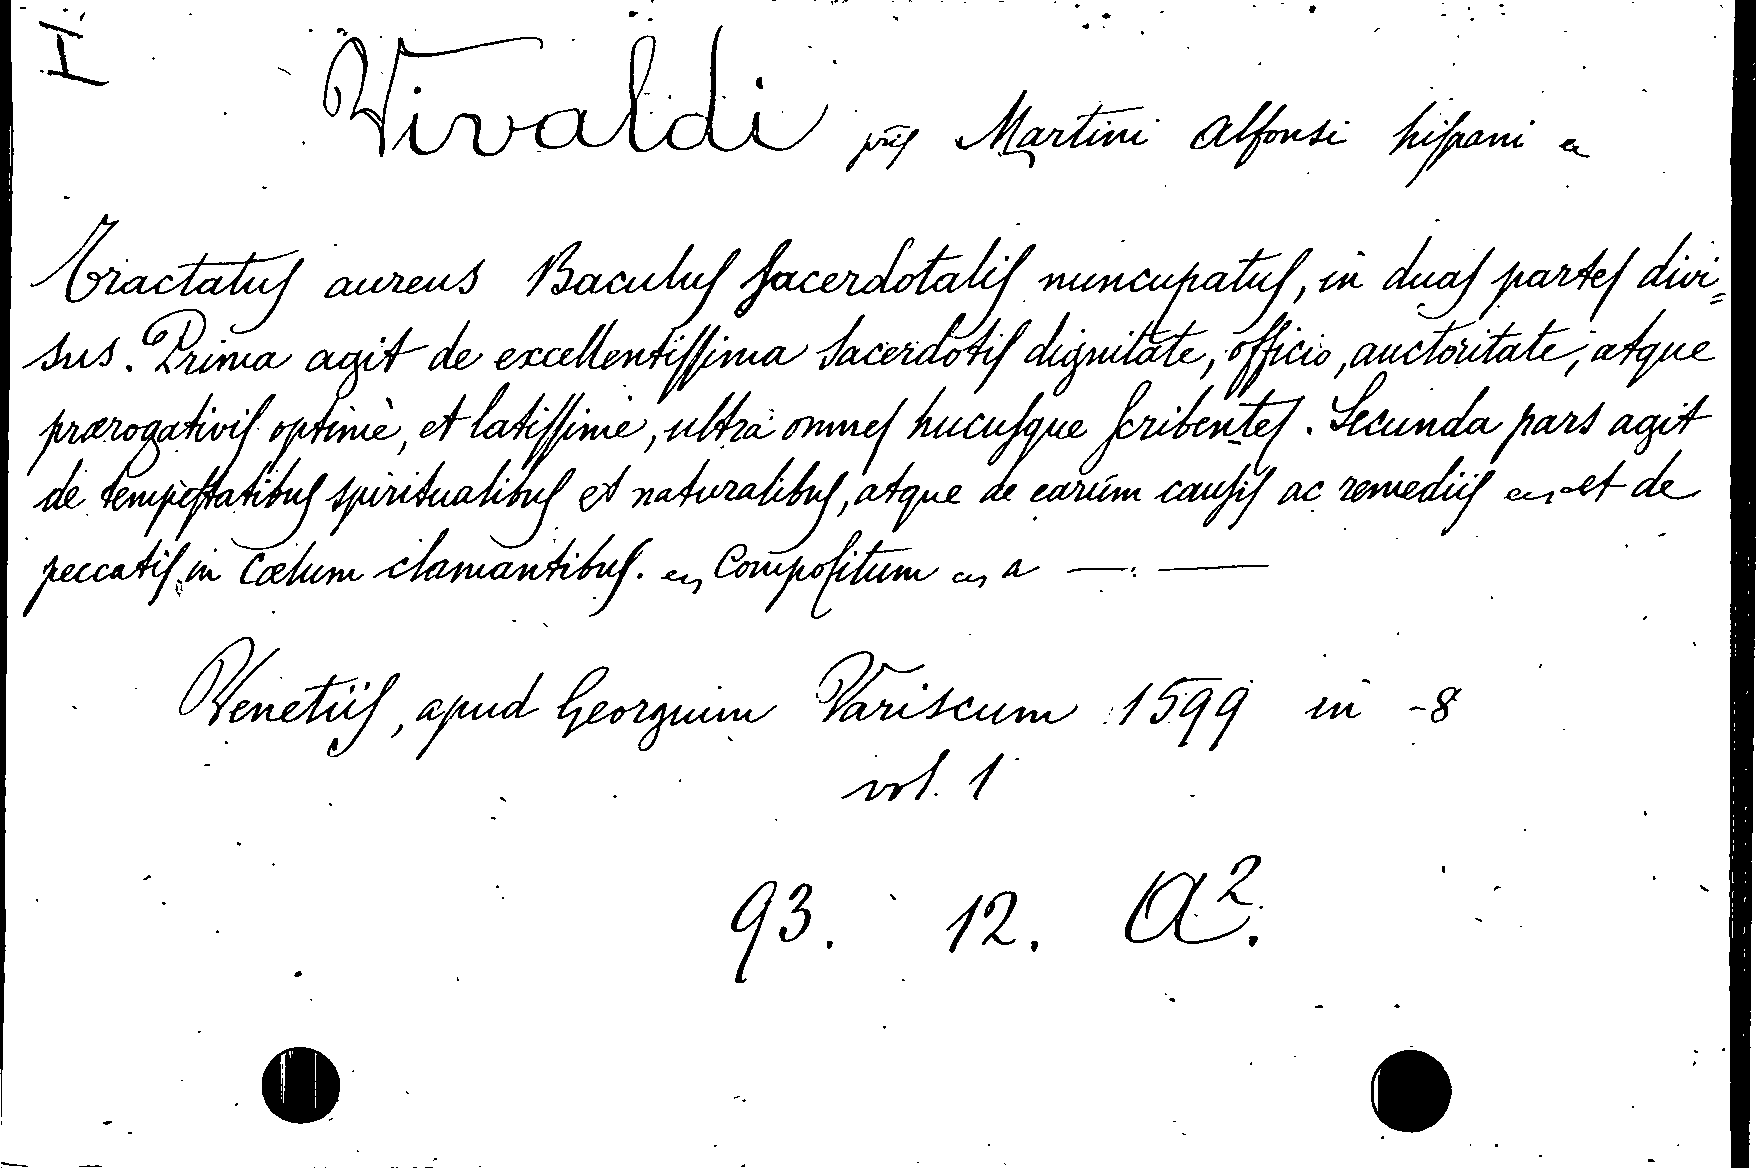 I
Vivaldi Martini Alfonsi hispani
Tractatus aureus Baculus sacerdotalis nuncupatus, in duas partes divi=
sus. Prima agit de excellentissima sacerdotis dignitate, officio, auctoritate, atque
prærogativis optimè, et latissimè, ultra omnes hucusque scribentes. Secunda pars agit
de tempestatibus spiritualibus et naturalibus, atque de earum causis ac remediis et de
peccatis in cœlum clamantibus. Compositum a —
Venetiis, apud Georguim Variscum 1599 in -8
vol. 1
93. 12. A².